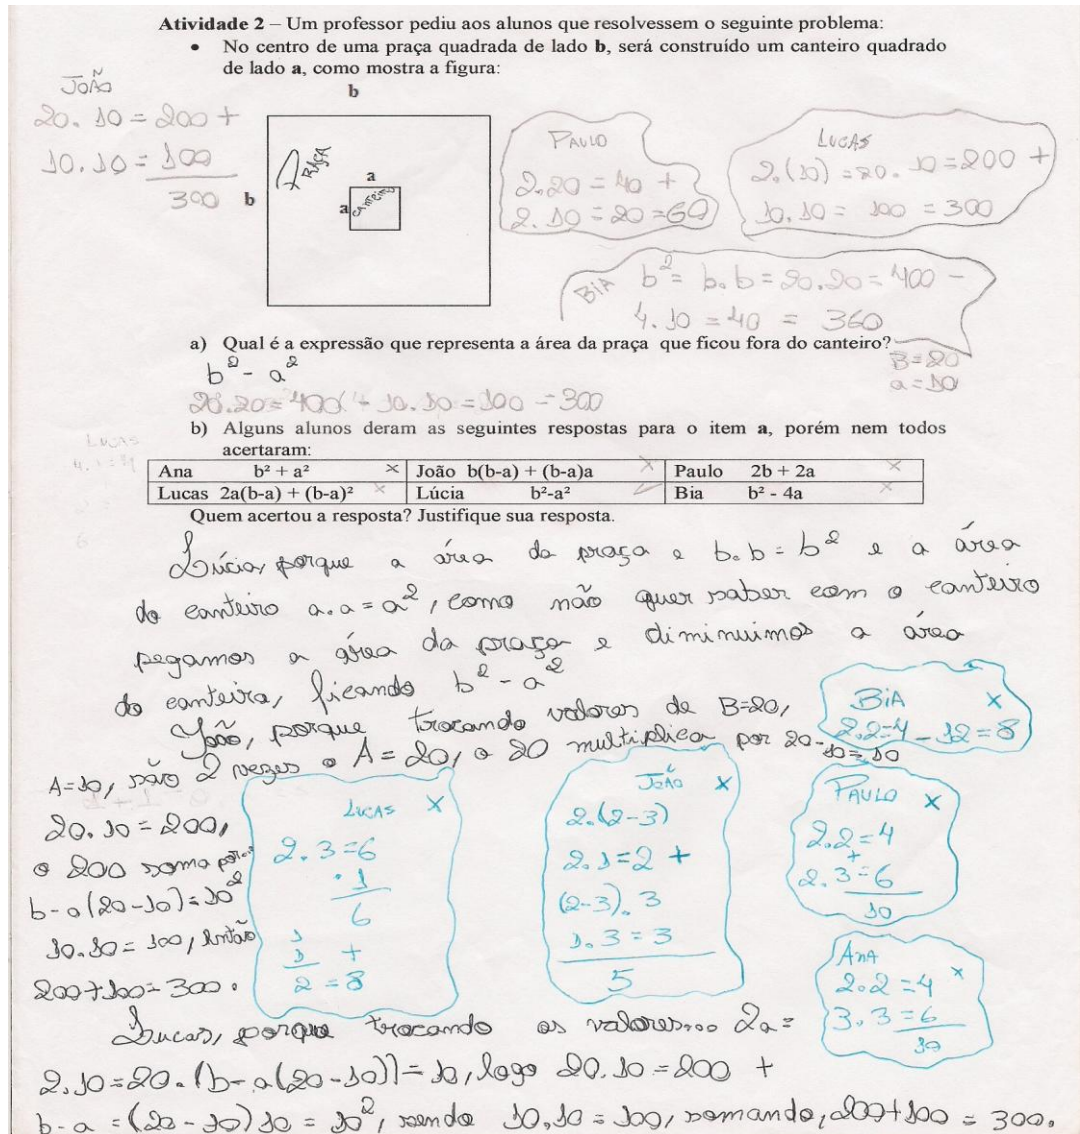 Atividade 2 – Um professor pediu aos alunos que resolvessem o seguinte problema:
• No centro de uma praça quadrada de lado b, será construído um canteiro quadrado
de lado a, como mostra a figura:
JOÃO
20. 10 = 200 +
10. 10 = 100
300
b
b
PRAÇA
a
a
CANTEIRO
PAULO
2.20 = 40 +
2.10 = 20 = 60
LUCAS
2.(10) = 20. 10 = 200 +
10.10 = 100 = 300
BIA
b² = b.b = 20.20 = 400 -
4.10 = 40 = 360
a) Qual é a expressão que representa a área da praça que ficou fora do canteiro?
B=20
a=10
b² - a²
20.20 = 400 - 10.10 = 100 = 300
b) Alguns alunos deram as seguintes respostas para o item a, porém nem todos
acertaram:
LUCAS
Ana b² + a² × João b(b-a) + (b-a)a × Paulo 2b + 2a ×
Lucas 2a(b-a) + (b-a)² × Lúcia b²-a² Bia b² - 4a ×
Quem acertou a resposta? Justifique sua resposta.
Lúcia, porque a área da praça e b.b = b² e a área
do canteiro a.a = a², como não quer saber com o canteiro
pegamos a área da praça e diminuimos a área
do canteiro, ficando b² - a²
João, porque trocando valores de B=20,
A=10, são 2 vezes o A = 20, o 20 multiplica por 20-10=10
20.10 = 200,
o 200 soma por...
b-a(20-10)=10²
10.10 = 100, então
200+100=300.
BIA ×
2.2=4 - 12=8
LUCAS ×
2.3=6
.1
6
1
1 +
2 = 8
JOÃO ×
2.(2-3)
2.1=2 +
(2-3).3
1.3=3
5
PAULO ×
2.2=4
+
2.3=6
10
ANA ×
2.2=4
3.3=6
10
Lucas, porque trocando os valores... 2a=
2.10=20.(b-a(20-10))=10, logo 20.10=200 +
b-a = (20-10)10 = 10², sendo 10.10=100, somando, 200+100 = 300.